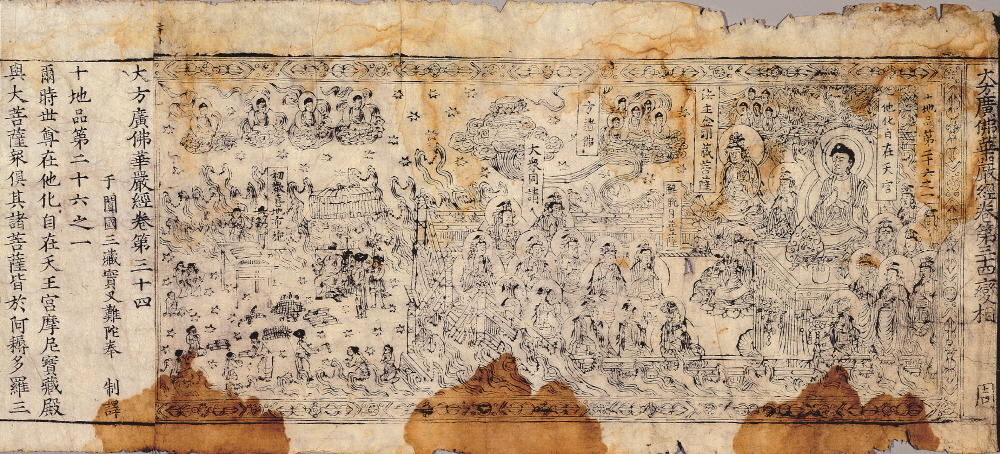 大方廣佛華嚴經卷第三十四變相
周
十地品第二十六之一
他化自在天宮
法主金剛藏菩薩
十方諸佛
大衆同請
初歡喜地
大方廣佛華嚴經卷第三十四
于闐國三藏實叉難陀奉 制譯
十地品第二十六之一
爾時世尊在他化自在天王宮摩尼寶藏殿
與大菩薩衆俱其諸菩薩皆於阿耨多羅三